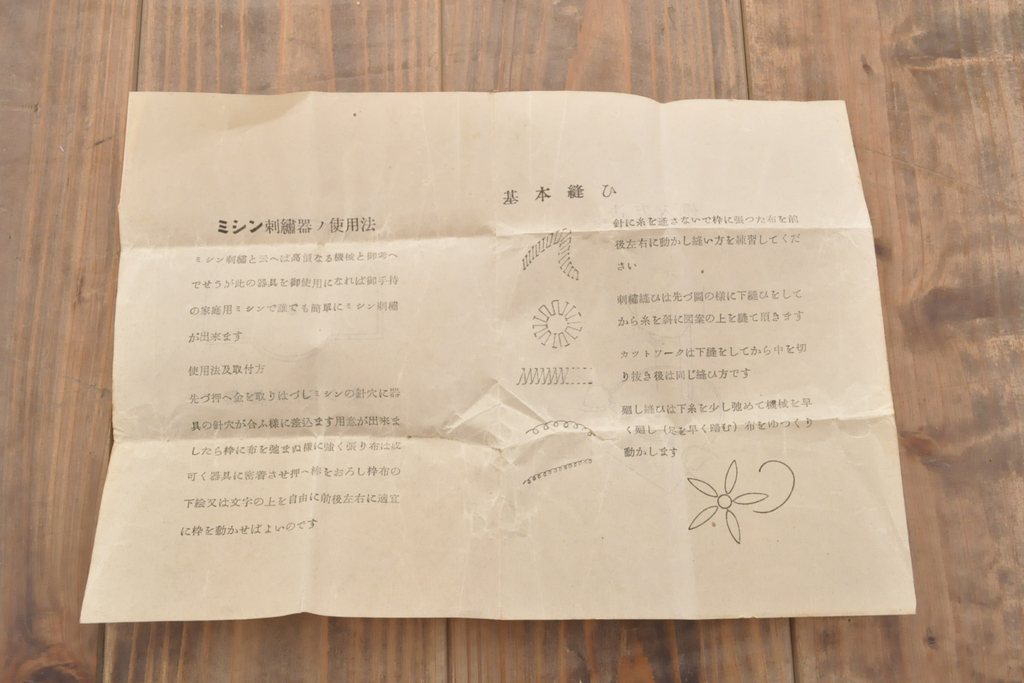 ミシン刺繡器ノ使用法
ミシン刺繡と云へば高價なる機械と御考へ
でせうが此の器具を御使用になれば御手持
の家庭用ミシンで誰でも簡單にミシン刺繡
が出來ます
使用法及取付方
先づ押へ金を取りはづしミシンの針穴に器
具の針穴が合ふ様に差込ます用意が出來ま
したら枠に布を弛まぬ様に強く張り布は成
可く器具に密着させ押へ棒をおろし枠布の
下絵又は文字の上を自由に前後左右に適宜
に枠を動かせばよいのです
基本縫ひ
針に糸を通さないで枠に張つた布を前
後左右に動かし縫い方を練習してくだ
さい
刺繡縫ひは先づ圖の様に下縫ひをして
から糸を斜に図案の上を縫て頂きます
カットワークは下縫をしてから中を切
り抜き後は同じ縫ひ方です
廻し縫ひは下糸を少し弛めて機械を早
く廻し(足を早く踏む)布をゆつくり
動かします